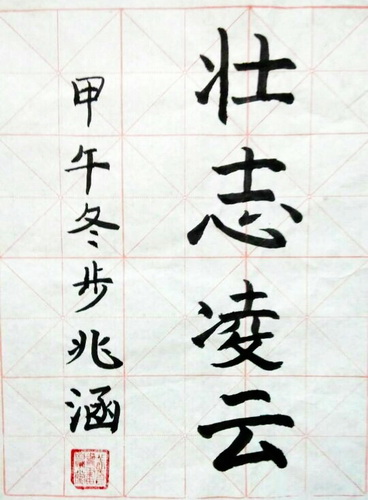 壮志凌云
甲午冬步兆涵